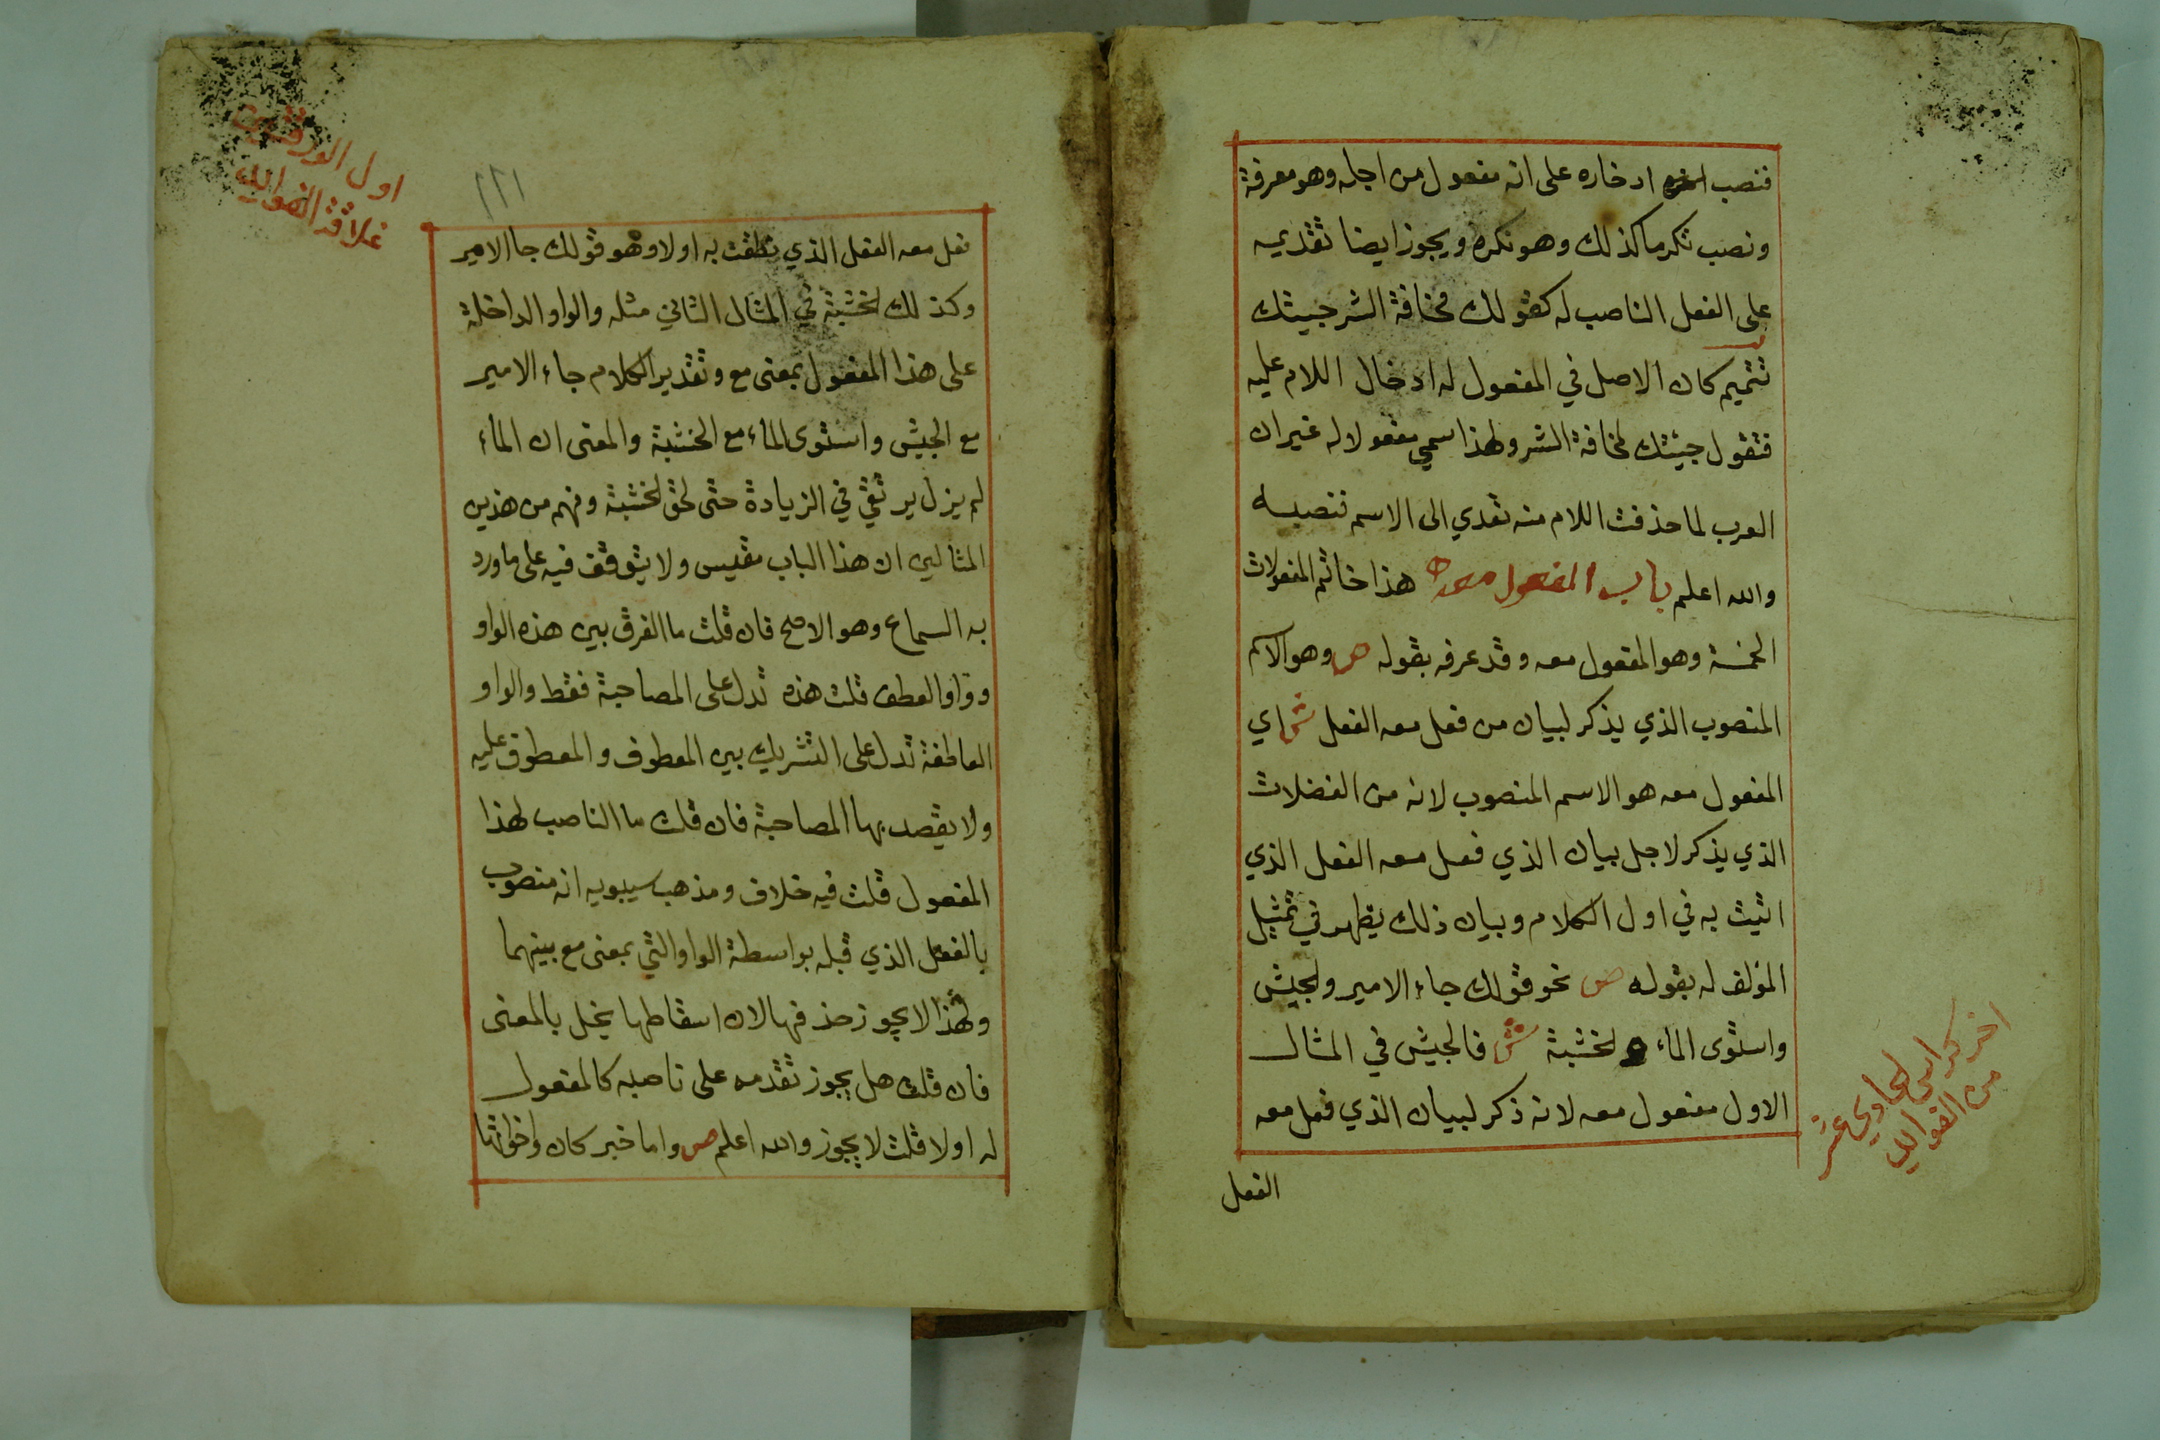 فنصب ادخاره على انه مفعول من اجله وهو معرفة
ونصب تكرما كذلك وهو نكره ويجوز ايضا تقديمه
على الفعل الناصب له كقولك مخافة الشر جيتك
تتميم كان الاصل في المفعول له ادخال اللام عليه
فتقول جيئتك لمخافة الشر ولهذا سمي مفعولا له غير ان
العرب لما حذفت اللام منه تعدي الى الاسم فنصبه
والله اعلم باب المفعول معه هذا خاتم المفعولات
الخمسة وهو المفعول معه وقد عرفه بقوله ص وهو الاسم
المنصوب الذي يذكر لبيان من فعل معه الفعل ش اي
المفعول معه هو الاسم المنصوب لانه من الفضلات
الذي يذكر لاجل بيان الذي فعل معه الفعل الذي
اتيت به في اول الكلام وبيان ذلك يظهر في تمثيل
المؤلف له بقوله ص نحو قولك جاء الامير ولجيش
واستوى الماء و لخشبة ش فالجيش في المثال
الاول مفعول معه لانه ذكر لبيان الذي فعل معه
الفعل
اخر كراس الحاوي عشر
من الفوايد
اول الورقة
علاقة الفوايد
١٢١
فعل معه الفعل الذي نطقت به اولا وهو قولك جا الامير
وكذلك لخشبة في المثال الثاني مثله والواو الداخلة
على هذا المفعول بمعنى مع وتقدير الكلام جاء الامير
مع الجيش واستوى الماء مع الخشبة والمعنى ان الماء
لم يزل يرتقي في الزيادة حتى لحق لخشبة وفهم من هذين
المثالين ان هذا الباب مقيس ولا يتوقف فيه على ما ورد
به السماع وهو الاصح فان قلت ما الفرق بين هذه الواو
وواو العطف قلت هذه تدل على المصاحبة فقط والواو
العاطفة تدل على التشريك بين المعطوف والمعطوف عليه
ولا يقصد بها المصاحبة فان قلت ما الناصب لهذا
المفعول قلت فيه خلاف ومذهب سيبويه انه منصوب
بالفعل الذي قبله بواسطة الواو التي بمعنى مع بينهما
ولهذا لا يجوز حذفها لان اسقاطها يخل بالمعنى
فان قلت هل يجوز تقدمه على ناصبه كالمفعول
له اولا قلت لا يجوز والله اعلم ص واما خبر كان واخواتها